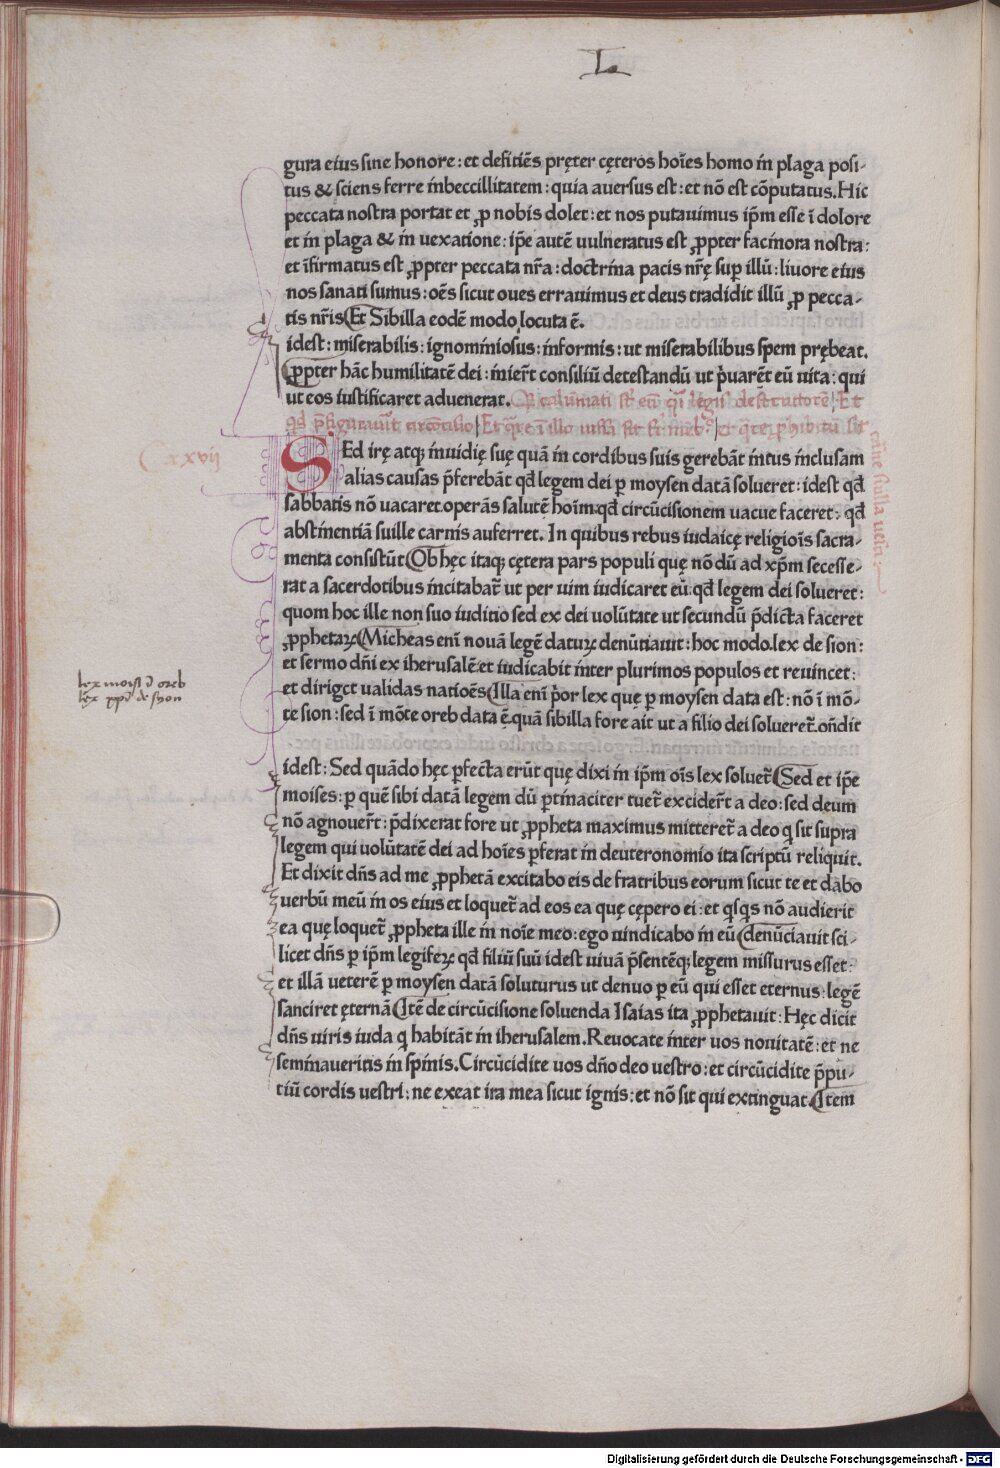 gura eius sine honore: et defitiēs pręter cęteros hoīes homo in plaga posi-
tus & sciens ferre inbeccillitatem: quia auersus est: et nō est cōputatus. Hic
peccata nostra portat et ꝓ nobis dolet: et nos putauimus ip̄m esse ī dolore
et in plaga & in uexatione: ip̄e autē uulneratus est ꝓpter facinora nostra:
et īfirmatus est ꝓpter peccata nr̄a: doctrina pacis nr̄ę suꝑ illū: liuore eius
nos sanati sumus: oēs sicut oues errauimus et deus tradidit illū ꝓ pecca-
tis nr̄is Et Sibilla eodē modo locuta ē.
idest: miserabilis: ignominiosus: informis: ut miserabilibus spem prębeat.
ꝓpter hāc humilitatē dei: inier̄t consiliū detestandū ut p̄uarēt eū uita: qui
ut eos iustificaret aduenerat.
xxvij
SEd irę atqꝫ inuidię suę quā in cordibus suis gerebāt intus inclusam
alias causas p̄ferebāt qd̄ legem dei ꝑ moysen datā solueret: idest qd̄
sabbatis nō uacaret operās salutē hoīm: qd̄ circūcisionem uacue faceret: qd̄
abstinentiā suille carnis auferret. In quibus rebus iudaicę religioīs sacra-
menta consistūt Ob hęc itaqꝫ cętera pars populi quę nō dū ad xp̄m secesse-
rat a sacerdotibus incitabat᷑ ut per uim iudicaret eū: qd̄ legem dei solueret:
quom hoc ille non suo iuditio sed ex dei uolūtate ut secundū p̄dicta faceret
ꝓphetaꝝ Micheas enī nouā legē datuꝝ denūtiauit: hoc modo. lex de sion:
et sermo dn̄i ex iherusalē: et iudicabit inter plurimos populos et reuincet:
et diriget ualidas natioēs Illa enī p̄or lex quę ꝑ moysen data est: nō ī mō-
te sion: sed ī mōte oreb data ē. quā sibilla fore ait ut a filio dei solueret᷑. on̄dit
lex moisi d oreb
lex xpi de syon
idest: Sed quādo hęc ꝑfecta erūt quę dixi in ip̄m oīs lex soluet᷑ Sed et ip̄e
moises: ꝑ quē sibi datā legem dū ꝑtinaciter tuet᷑ excider̄t a deo: sed deum
nō agnouer̄t: p̄dixerat fore ut ꝓpheta maximus mitteret᷑ a deo q̄ sit supra
legem qui uolūtatē dei ad hoīes ꝑferat in deuteronomio ita scriptū reliquit.
Et dixit dn̄s ad me ꝓphetā excitabo eis de fratribus eorum sicut te et dabo
uerbū meū in os eius et loquet᷑ ad eos ea quę cępero ei: et q̄sq̄s nō audierit
ea quę loquet᷑ ꝓpheta ille in noīe meo: ego uindicabo in eū denūciauit sci-
licet dn̄s ꝑ ip̄m legiferꝝ qd̄ filiū suū idest uiuā p̄sentēqꝫ legem missurus esset:
et illā ueterē ꝑ moysen datā soluturus ut denuo ꝑ eū qui esset eternus: legē
sanciret ęternā Itē de circūcisione soluenda Isaias ita ꝓphetauit: Hęc dicit
dn̄s uiris iuda q̄ habitāt in iherusalem. Reuocate inter uos nouitatē: et ne
seminaueritis in spinis. Circūcidite uos dn̄o deo uestro: et circūcidite p̄pu-
tiū cordis uestri: ne exeat ira mea sicut ignis: et nō sit qui extinguat. Item
Digitalisierung gefördert durch die Deutsche Forschungsgemeinschaft - DFG